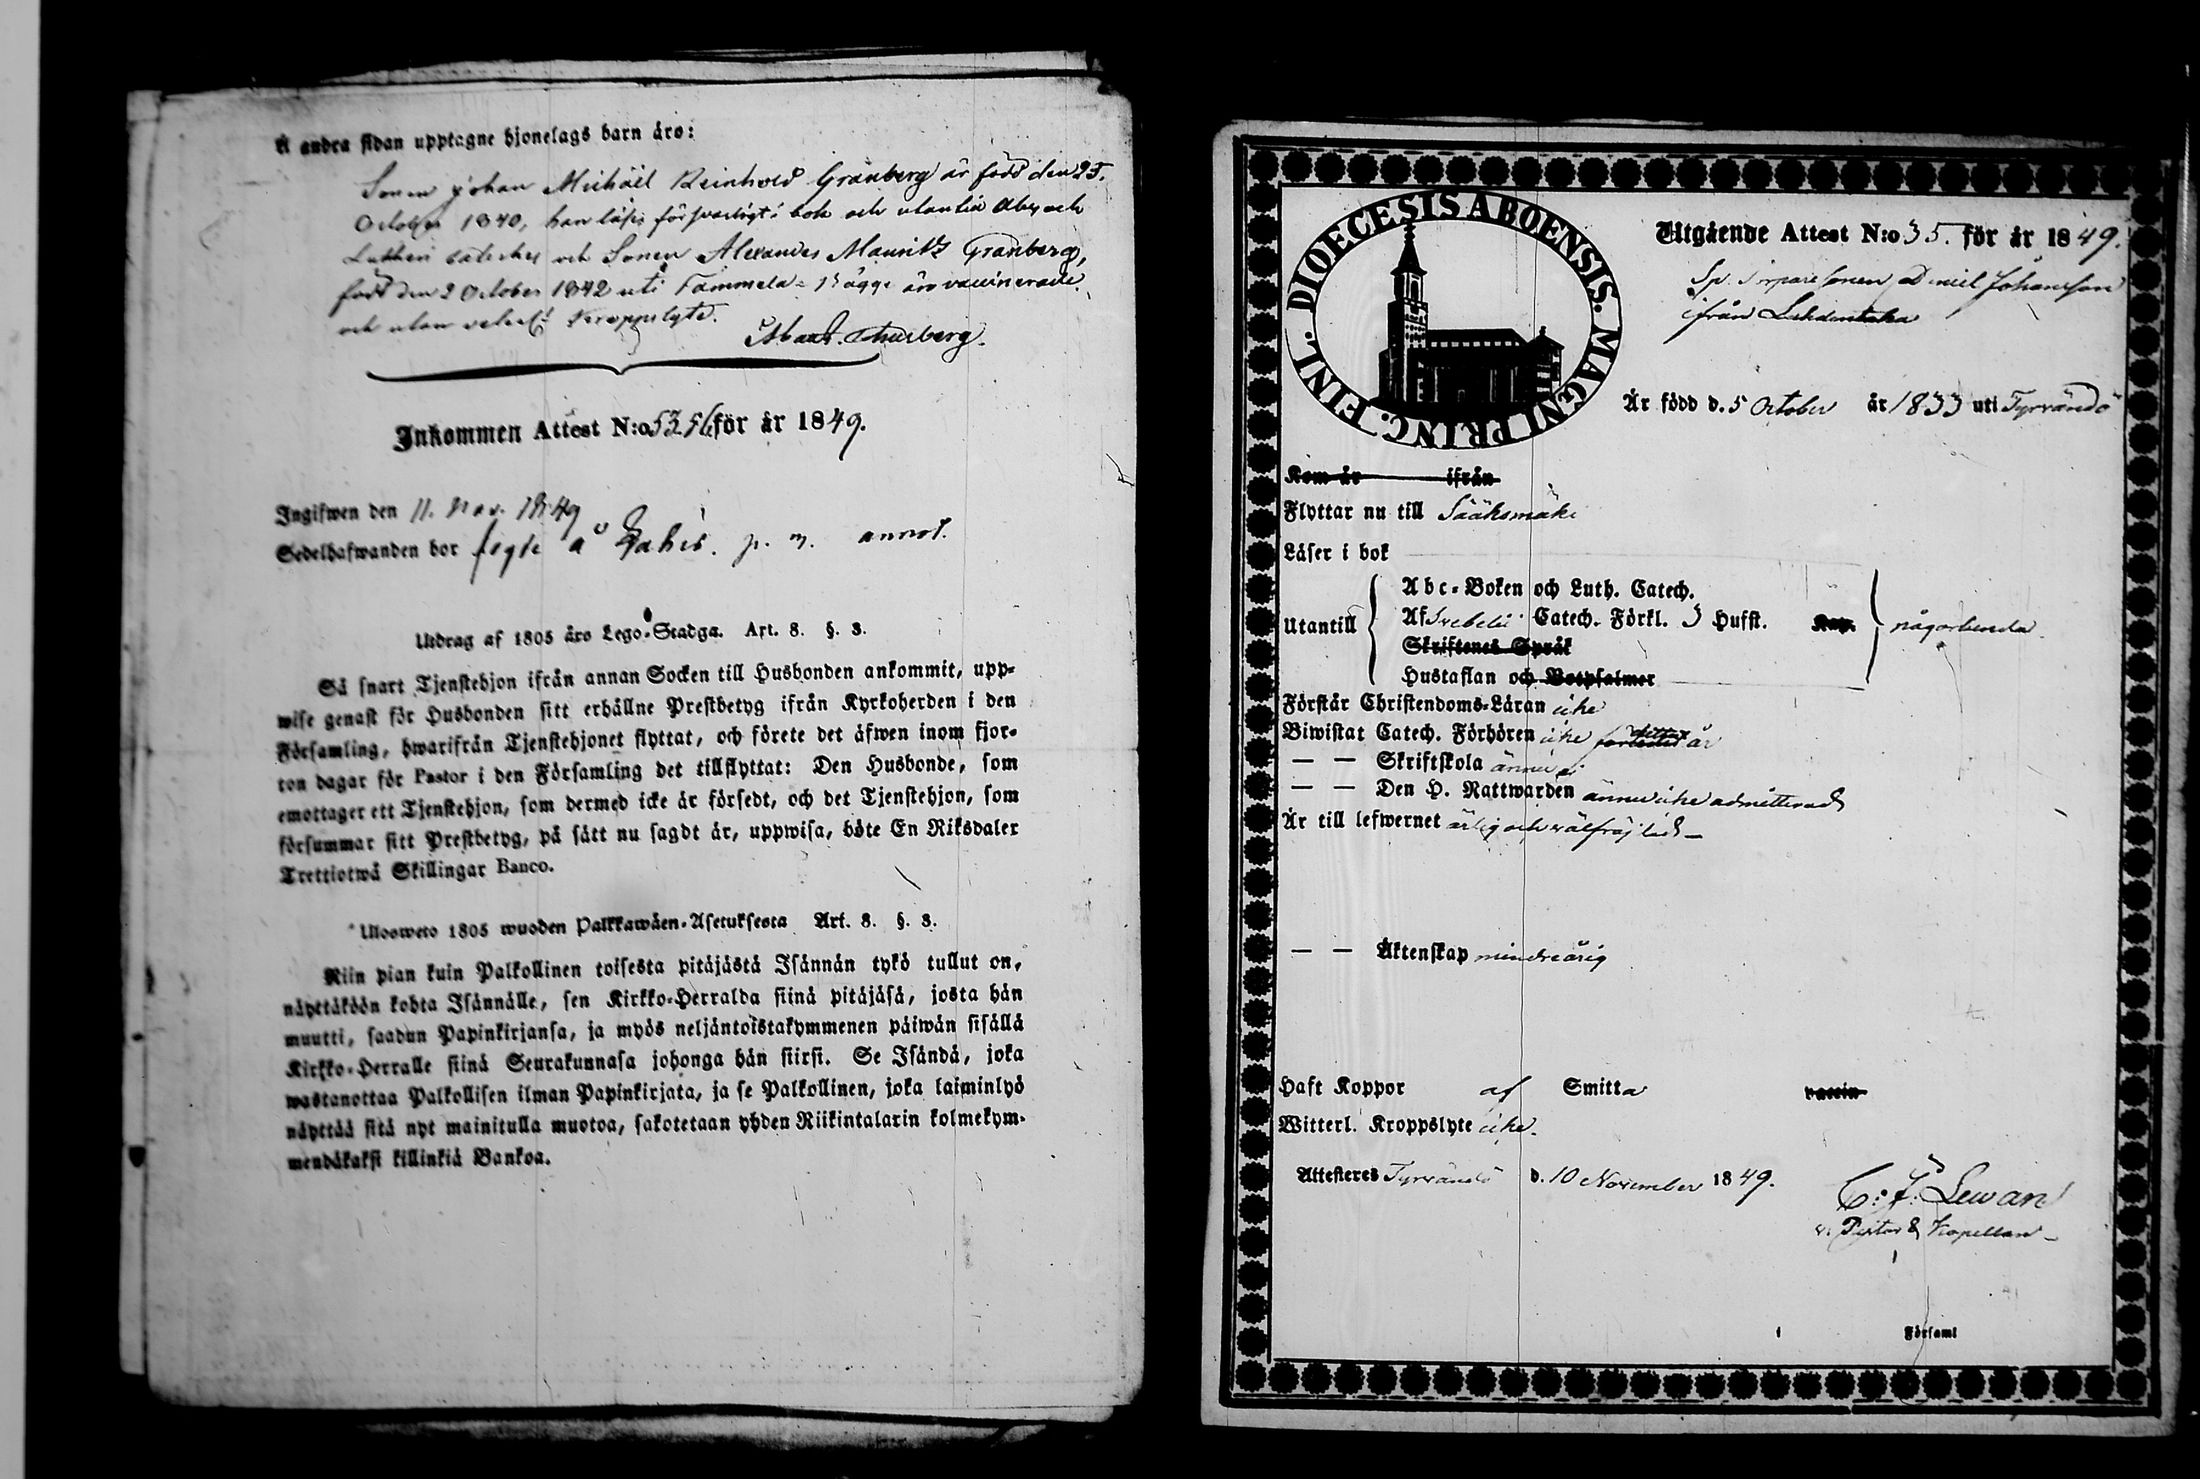 Å andra sidan upptagne hjonelags barn äro:
Sonen Johan Michaël Reinhold Granberg är född den 25.
October 1840, han läser försvarligt i bok och utantill Abc och
Lutheri cateches och Sonen Alexander Mauritz Granberg,
född den 2 October 1842 uti Tammela. Bägge äro vaccinerade
och utan Kroppslyte.
Inkommen Attest N:o 53.56 för år 1849.
Ingifwen den 11. Nov. 1849
Sedelhafwanden bor å p. annot.
Utdrag af 1805 års Lego-Stadga. Art. 8. §. 3.
Så snart Tjenstehjon ifrån annan Socken till Husbonden ankommit, upp-
wise genast för Husbonden sitt erhållne Prestbetyg ifrån Kyrkoherden i den
Församling, hwarifrån Tjenstehjonet flyttat, och förete det äfwen inom fjor-
ton dagar för Pastor i den Församling det tillflyttat: Den Husbonde, som
emottager ett Tjenstehjon, som dermed icke är försedt, och det Tjenstehjon, som
försummar sitt Prestbetyg, på sätt nu sagdt är, uppwisa, böte En Riksdaler
Trettiotwå Skillingar Banco.
Ulosweto 1805 wuoden Palkkawäen-Asetuksesta Art. 8. §. 3.
Niin pian kuin Palkollinen toisesta pitäjästä Isännän tykö tullut on,
näyttäköön kohta Isännälle, sen Kirkko-Herralda siinä pitäjäsä, josta hän
muutti, saadun Papinkirjansa, ja myös neljäntoistakymmenen päiwän sisällä
Kirkko-Herralle siinä Seurakunnasa johonga hän siirsi. Se Isändä, joka
wastanottaa Palkollisen ilman Papinkirjata, ja se Palkollinen, joka laiminlyö
näyttää sitä nyt mainitulla muotoa, sakotetaan yhden Riikintalarin kolmekym-
mendäkaksi killinkiä Bankoa.
DIOECESIS ABOENSIS. MAGNI PRINC. FINL.
Utgående Attest N:o 35. för år 1849.
Daniel Johansson
ifrån
Är född d. 5 October år 1833 uti Tyrvändö
Kom år ifrån
Flyttar nu till Sääksmäki
Läser i bok
Utantill
Abc-Boken och Luth. Catech.
Af Svebelii Catech. Förkl. 3 Hufst. Kap.
Skriftenes Språk
Hustaflan och Botpsalmer
någorlunda.
Förstår Christendoms-Läran icke
Biwistat Catech. Förhören icke detta år
— — Skriftskola ännu ej
— — Den H. Nattwarden ännu icke admitterad
Är till lefwernet ärlig och välfrejdad —
— — Äktenskap minderårig
Haft Koppor af Smitta vaccin
Witterl. Kroppslyte icke.
Attesteres Tyrvändö d. 10 November 1849.
C: J: Lewan
v. Pastor & Kapellan —
i Församl